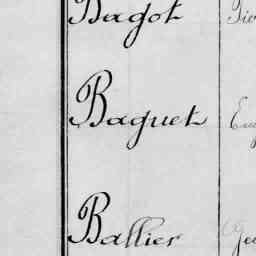 Bagot
Baguet
Ballier